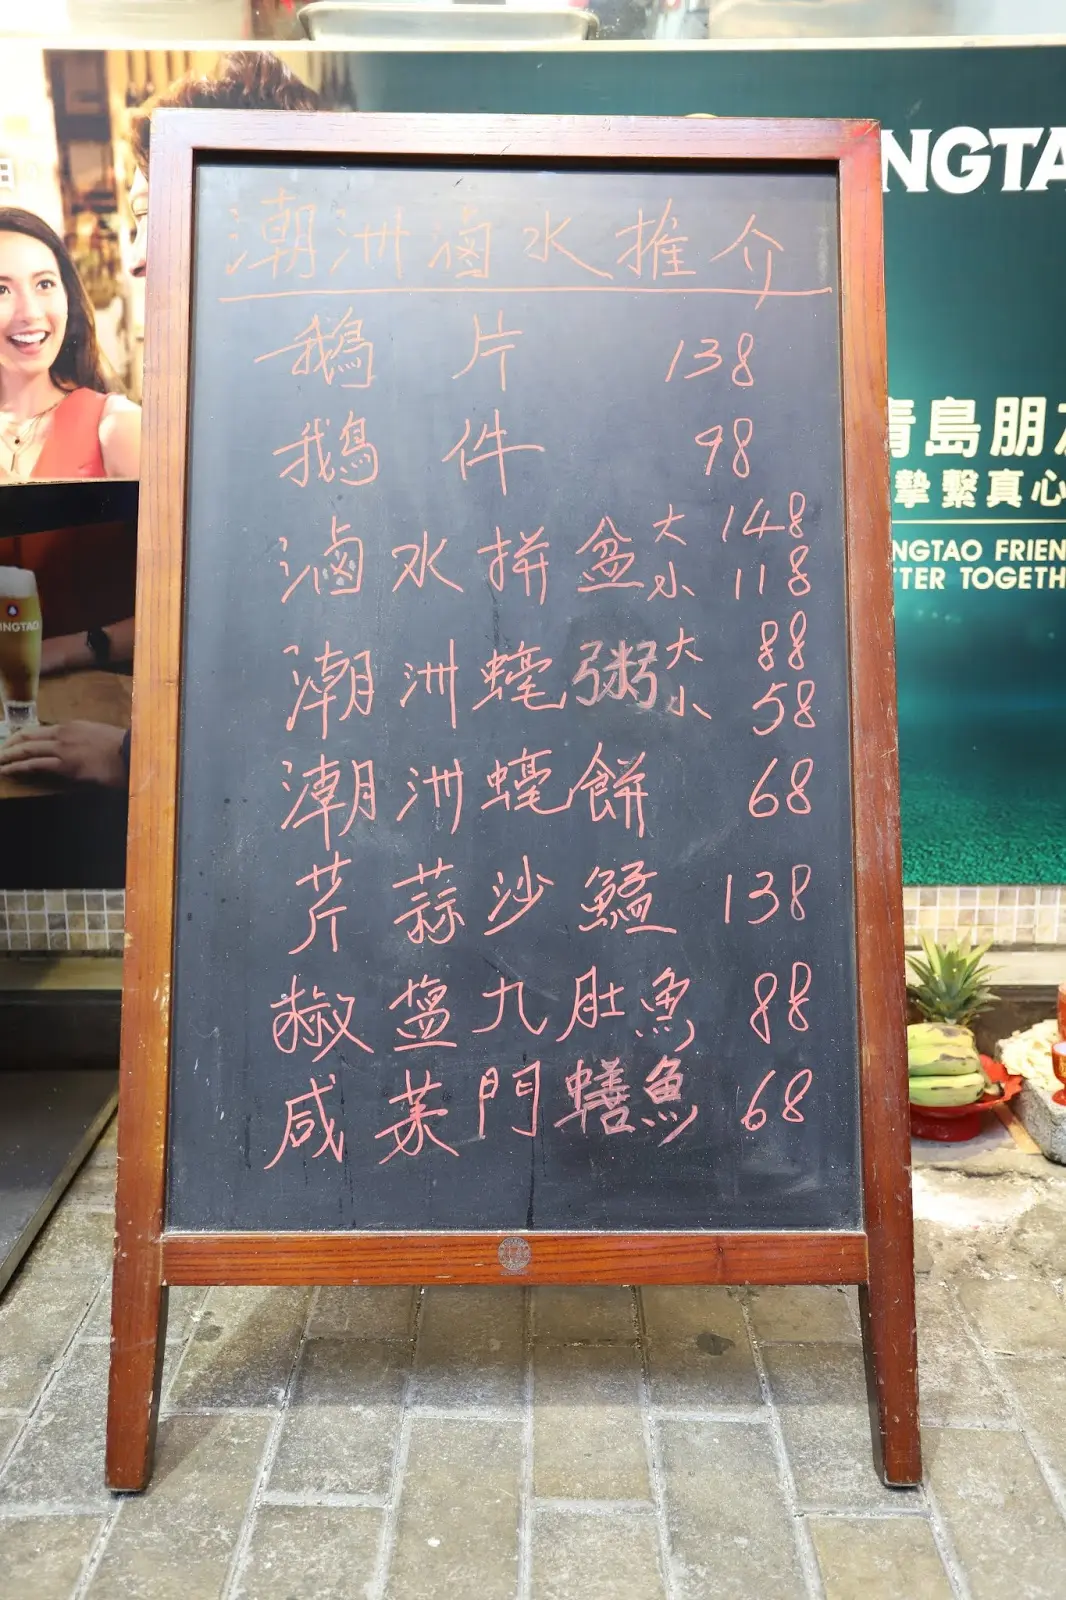 潮洲滷水推介
鵝片 138
鵝件 98
滷水拼盆大 148
小 118
潮洲蠔粥大 88
小 58
潮洲蠔餅 68
芹蒜沙鯭 138
椒盬九肚魚 88
咸菜門鱔魚 68
NGTA
青島朋友
摯繫真心
NGTAO FRIEN
TTER TOGETH
NGTAO